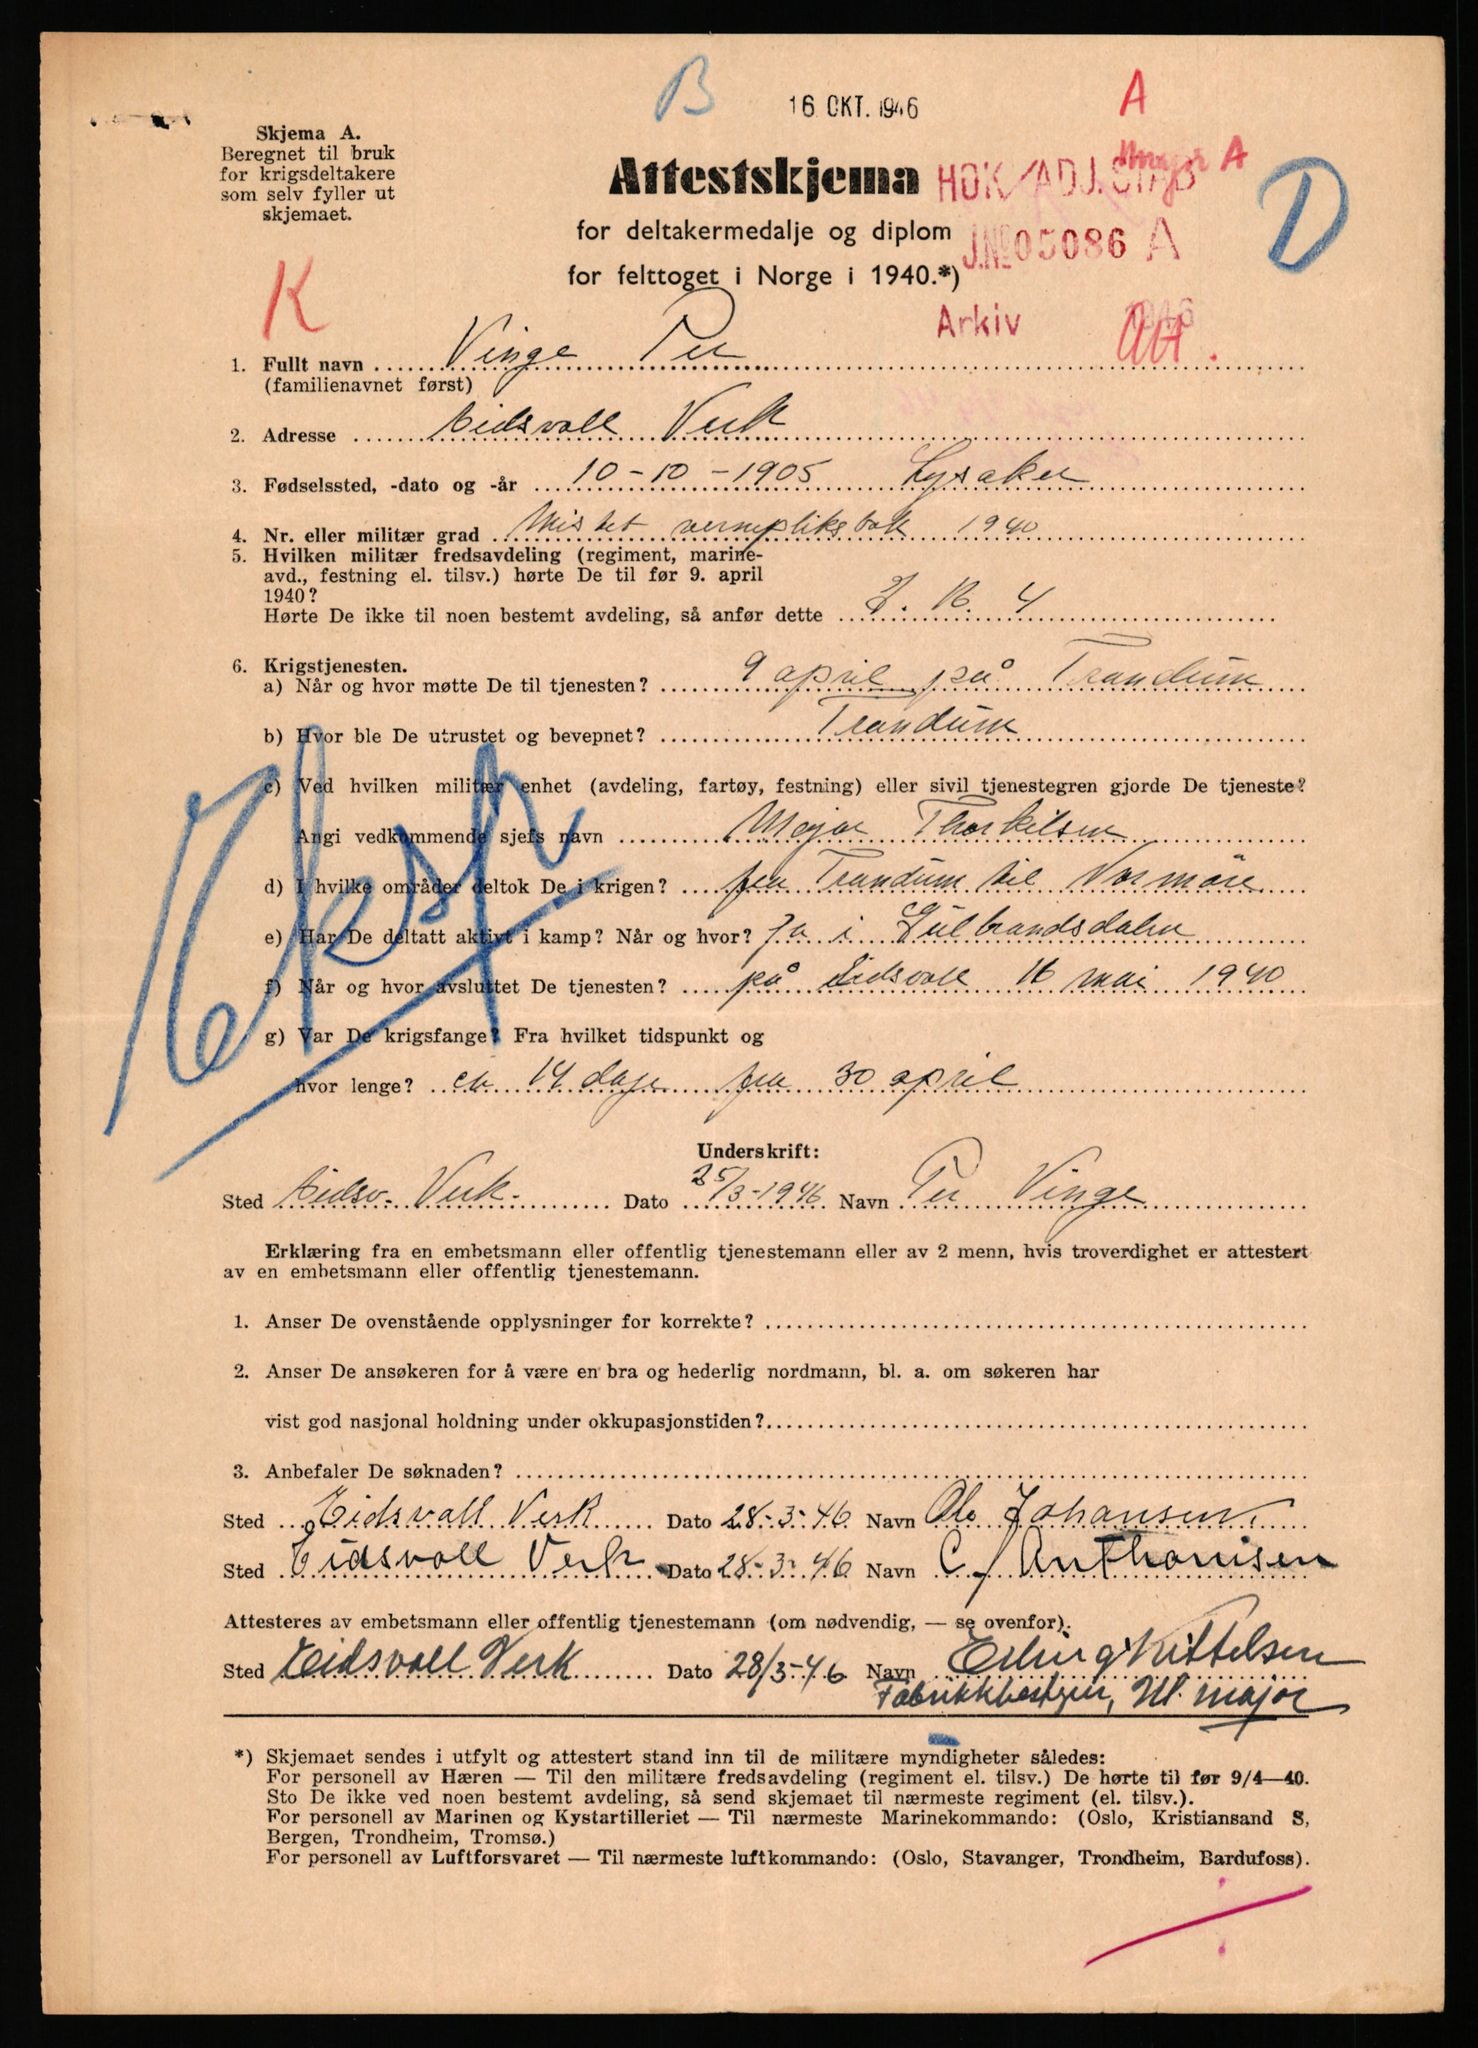 B
16 OKT. 1946
A
Skjema A.
Beregnet til bruk
for krigsdeltakere
som selv fyller ut
skjemaet.
Attestskjema
for deltakermedalje og diplom
for felttoget i Norge i 1940.*)
HOK/ADJ.STAB
A
J.No 05086 A
Arkiv 1946
D
K
1. Fullt navn Vinge Per
(familienavnet først)
2. Adresse Eidsvoll Verk
3. Fødselssted, -dato og -år 10-10-1905 Lysaker
4. Nr. eller militær grad Mistet vernepliksbok 1940
5. Hvilken militær fredsavdeling (regiment, marine-
avd., festning el. tilsv.) hørte De til før 9. april
1940?
Hørte De ikke til noen bestemt avdeling, så anfør dette I. R. 4
6. Krigstjenesten.
a) Når og hvor møtte De til tjenesten? 9 april på Trandum
b) Hvor ble De utrustet og bevepnet? Trandum
c) Ved hvilken militær enhet (avdeling, fartøy, festning) eller sivil tjenestegren gjorde De tjeneste?
Angi vedkommende sjefs navn Major Thorkilsen
d) I hvilke områder deltok De i krigen? fra Trandum til Vormåre
e) Har De deltatt aktivt i kamp? Når og hvor? Ja i Gulbrandsdalen
f) Når og hvor avsluttet De tjenesten? på Eidsvoll 16 mai 1940
g) Var De krigsfange? Fra hvilket tidspunkt og
hvor lenge? ca 14 dage fra 30 april
Underskrift:
Sted Eidsv. Verk. Dato 25/3-1946 Navn Per Vinge
Erklæring fra en embetsmann eller offentlig tjenestemann eller av 2 menn, hvis troverdighet er attestert
av en embetsmann eller offentlig tjenestemann.
1. Anser De ovenstående opplysninger for korrekte?
2. Anser De ansøkeren for å være en bra og hederlig nordmann, bl. a. om søkeren har
vist god nasjonal holdning under okkupasjonstiden?
3. Anbefaler De søknaden?
Sted Eidsvall Verk Dato 28-3-46 Navn Ole Johansen
Sted Eidsvoll Verk Dato 28-3-46 Navn C. Anthonisen
Attesteres av embetsmann eller offentlig tjenestemann (om nødvendig, — se ovenfor).
Sted Eidsvoll Verk Dato 28/3-46 Navn Erling Kittelsen
Fabrikkbestyrer, M. major
*) Skjemaet sendes i utfylt og attestert stand inn til de militære myndigheter således:
For personell av Hæren — Til den militære fredsavdeling (regiment el. tilsv.) De hørte til før 9/4—40.
Sto De ikke ved noen bestemt avdeling, så send skjemaet til nærmeste regiment (el. tilsv.).
For personell av Marinen og Kystartilleriet — Til nærmeste Marinekommando: (Oslo, Kristiansand S,
Bergen, Trondheim, Tromsø.)
For personell av Luftforsvaret — Til nærmeste luftkommando: (Oslo, Stavanger, Trondheim, Bardufoss).